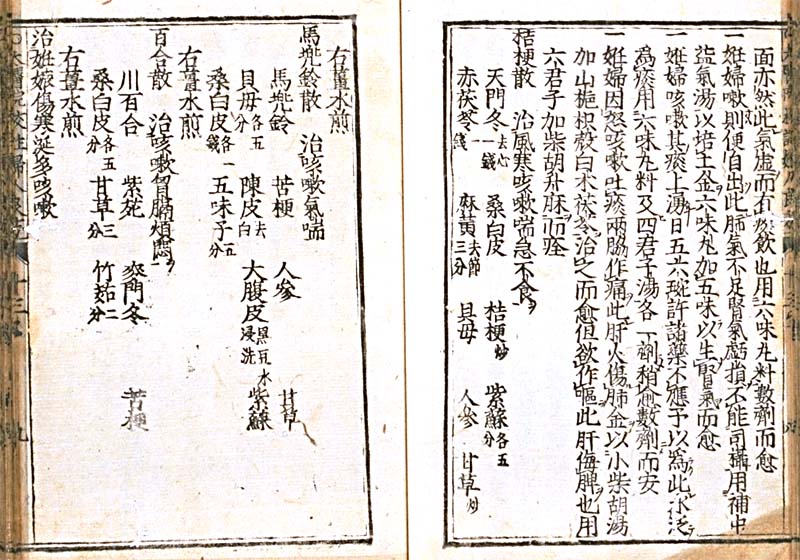 面亦然此氣虛而有痰飲也用六味丸料數劑而愈
一妊婦嗽則便自出此肺氣不足腎氣虧損不能司攝用補中
益氣湯以培土金六味丸加五味以生腎氣而愈
一妊婦咳嗽其痰上湧日五六碗許諸藥不應予以爲此水泛
爲痰用六味丸料及四君子湯各一劑稍愈數劑而安
一妊婦因怒咳嗽吐痰兩脇作痛此肝火傷肺金以小柴胡湯
加山梔枳殼白朮茯苓治之而愈但欲作嘔此肝侮脾也用
六君子加柴胡升麻而痊
桔梗散 治風寒咳嗽喘急不食
天門冬去心一錢 桑白皮 桔梗炒 紫蘇各五分
赤茯苓錢 麻黃去節三分 貝母 人參 甘草炒
右薑水煎
馬兜鈴散 治咳嗽氣喘
馬兜鈴 苦梗 人參 甘草
貝母各五分 陳皮去白 大腹皮黑豆水浸洗 紫蘇
桑白皮各一錢 五味子五分
右薑水煎
百合散 治咳嗽胃膈煩悶
川百合 紫菀 麥門冬 苦梗
桑白皮各五分 甘草三分 竹茹二分
右薑水煎
治妊娠傷寒涎多咳嗽